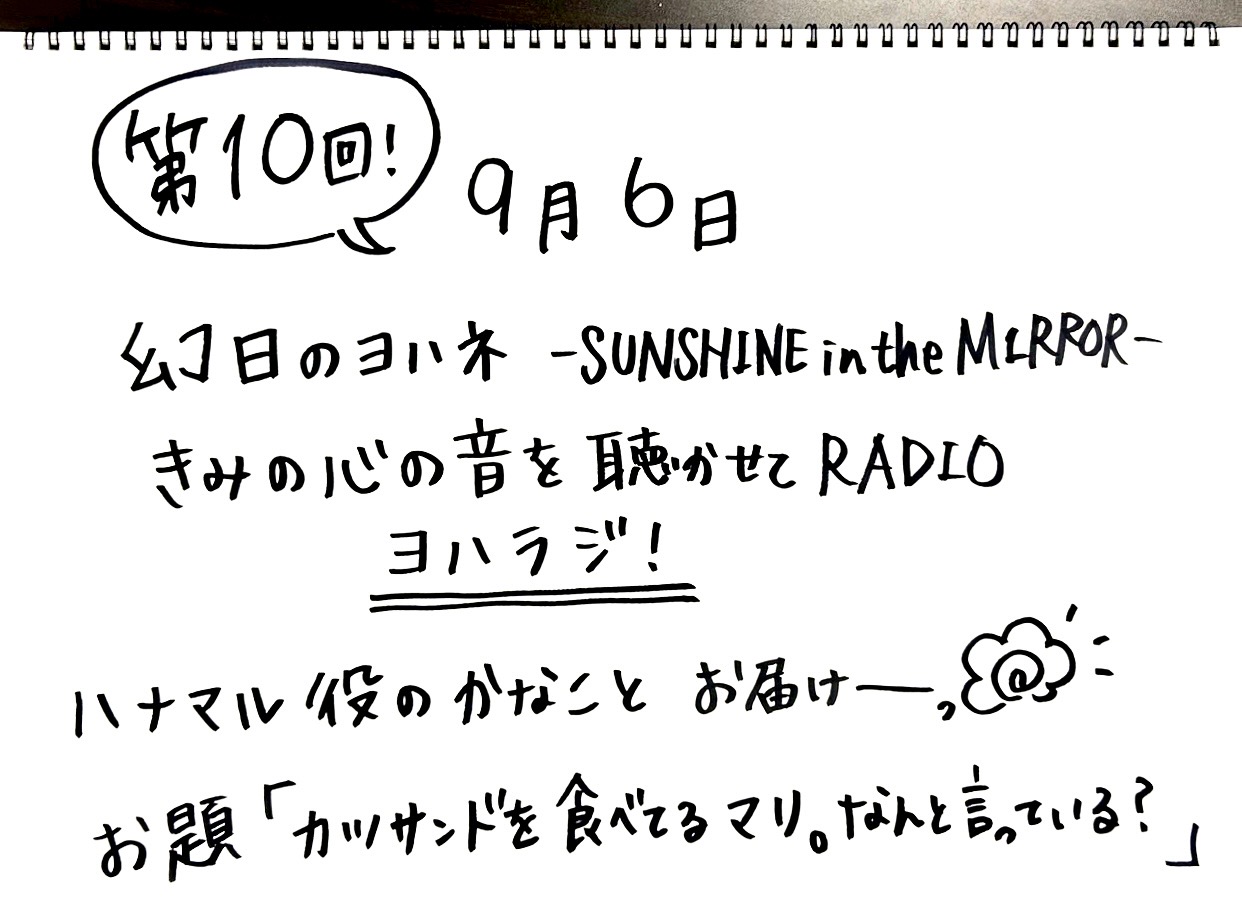 第10回!
9月6日
幻日のヨハネ -SUNSHINE in the MIRROR-
きみの心の音を聴かせてRADIO
ヨハラジ!
ハナマル役のかなこと お届けーっ
お題「カツサンドを食べてるマリ。なんと言っている?」